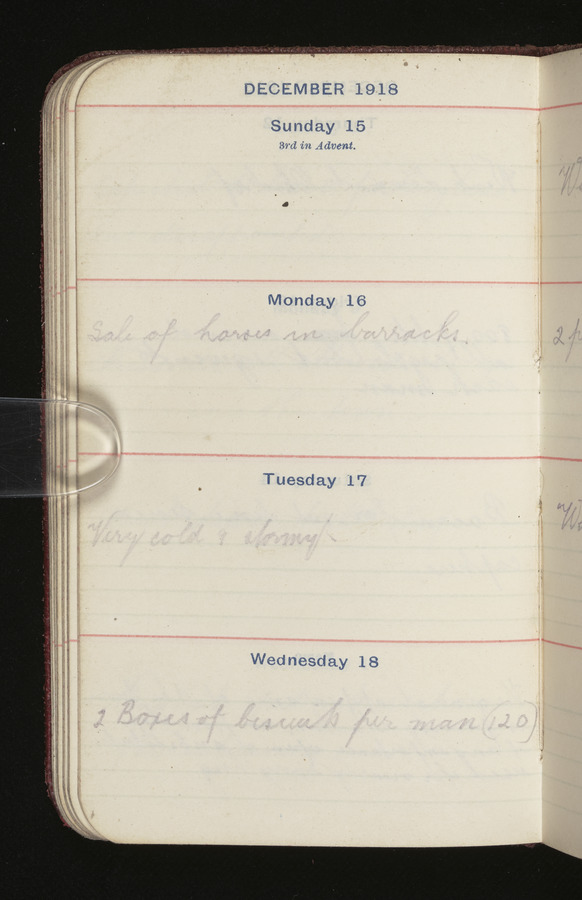 DECEMBER 1918
Sunday 15
3rd in Advent.
Monday 16
Sale of horses in barracks.
Tuesday 17
Very cold & stormy
Wednesday 18
2 Boxes of biscuits per man (120)
2